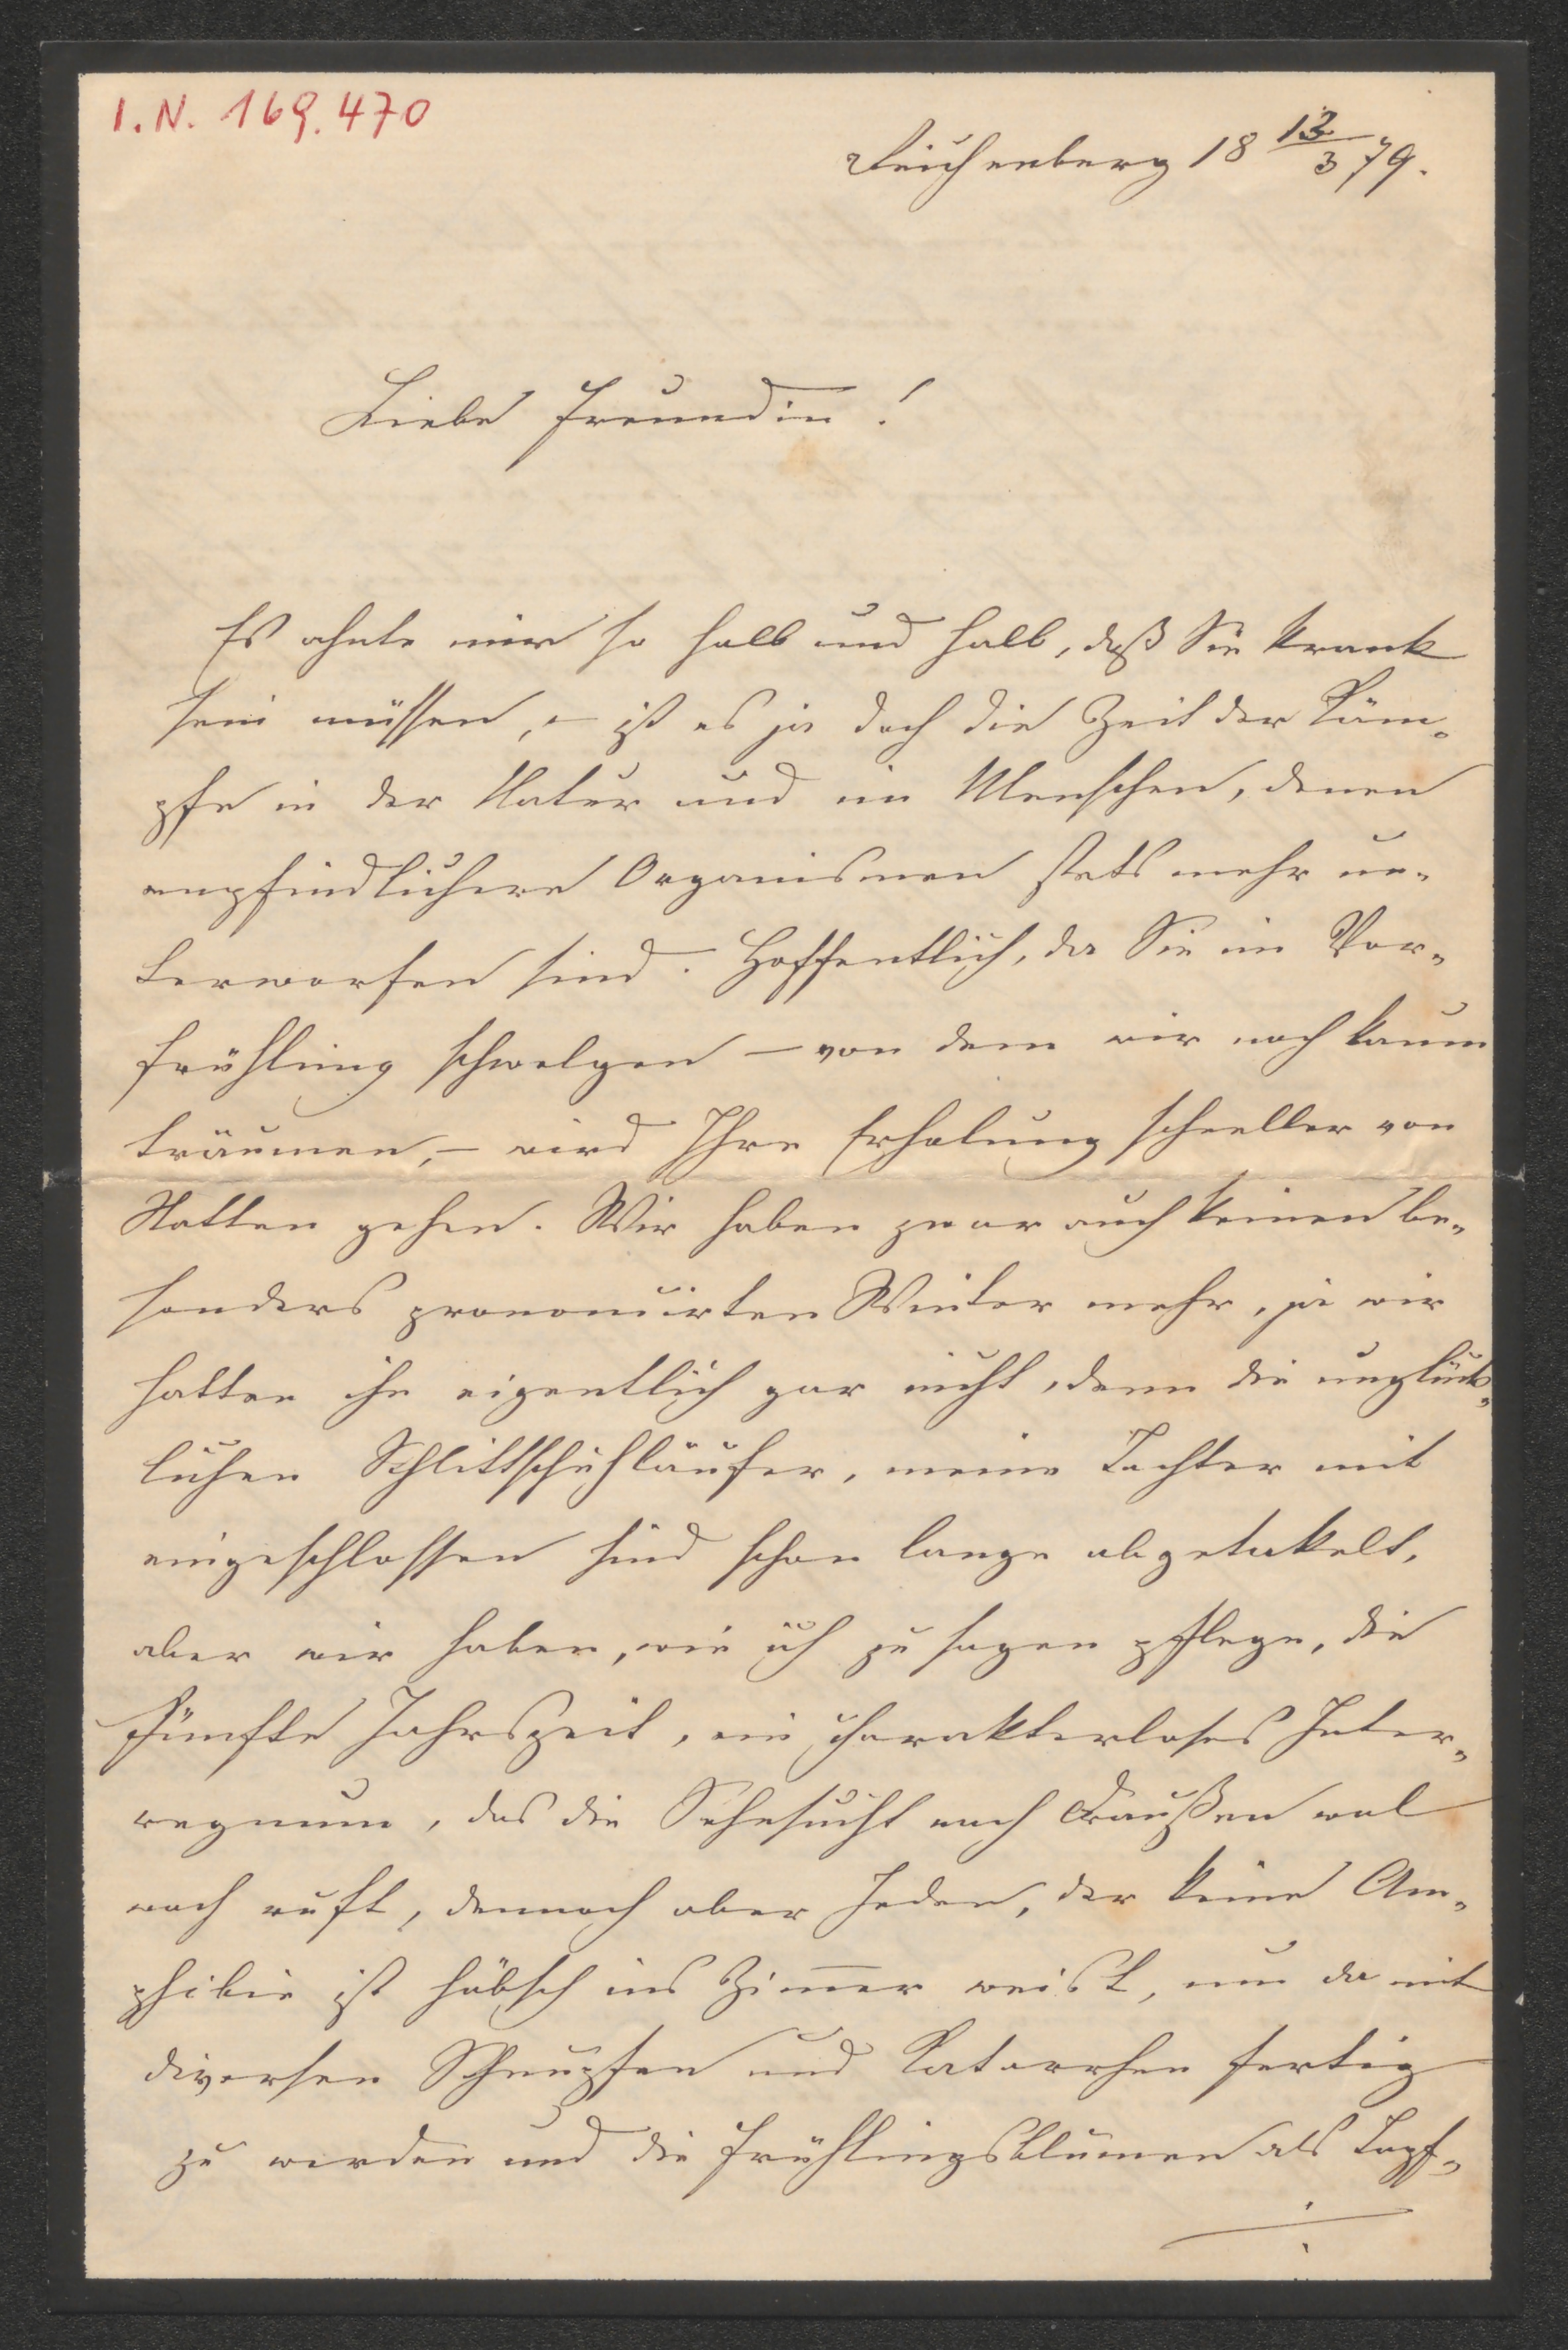 I. N. 169.470
Reichenberg 18 13/3 79.
Liebe Freundin!
Es ahnte mir so halb und halb, daß Sie krank
sein müssen, – ist es ja doch die Zeit der Käm-
pfe in der Natur und im Menschen, denen
empfindlichere Organismen stets mehr un-
terworfen sind. Hoffentlich, da Sie im Vor-
frühling schwelgen – von dem wir noch kaum
träumen, – wird Ihre Erholung schneller von
Statten gehen. Wir haben zwar auch keinen be-
sonders prononcirten Winter mehr, ja wir
hatten ihn eigentlich gar nicht, denn die unglück-
lichen Schlittschuhläufer, meine Tochter mit
eingeschlossen sind schon lange abgetakelt,
aber wir haben, wie ich zu sagen pflege, die
fünfte Jahrszeit, ein charakterloses Inter-
regnum, das die Sehnsucht nach Draußen wol
wach ruft, dennoch aber Jeden, der keine Am-
phibie ist hübsch ins Zimmer weist, um da mit
diversen Schnupfen und Katarrhen fertig
zu werden und die Frühlingsblumen als Topf-